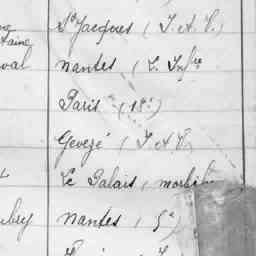 St Jacques ( I. et V. )
taine
val Nantes ( L. Infre
Paris (18e)
Gevezé ( I et V.
Le Palais, morbih
bry Nantes ( 5e